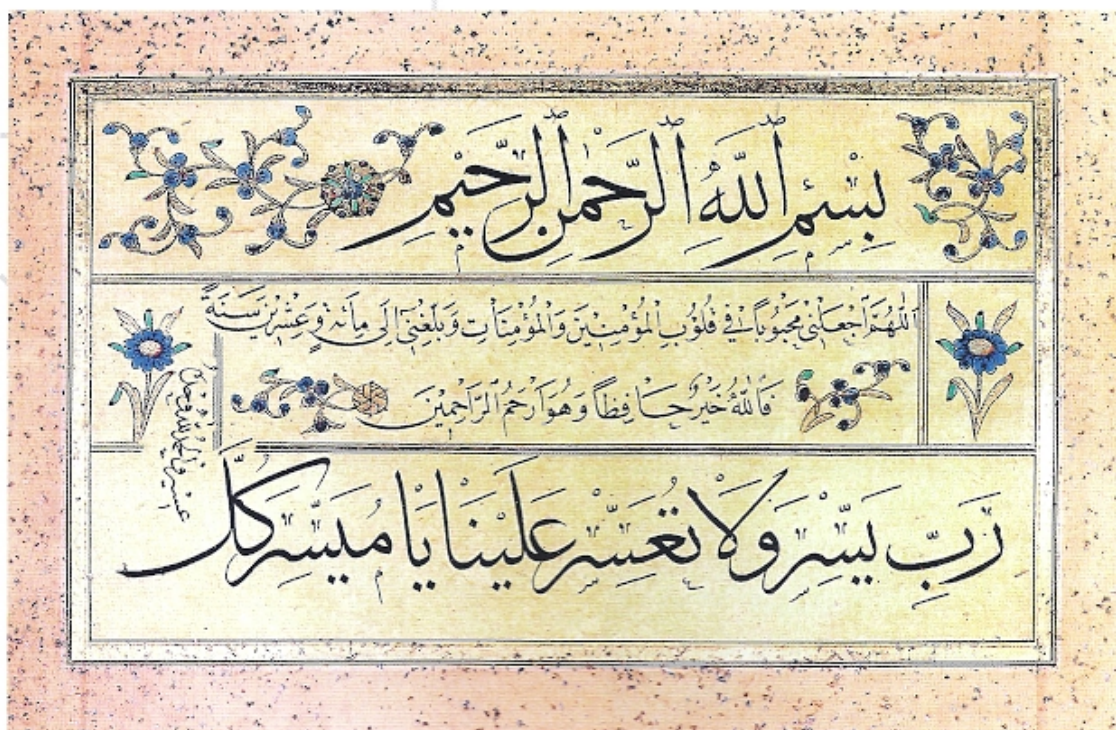 بِسْمِ اللّٰهِ الرَّحْمٰنِ الرَّحِيمِ
اَللّٰهُمَّ اجْعَلْنِي مَحْبُوبًا فِي قُلُوبِ الْمُؤْمِنِينَ وَالْمُؤْمِنَاتِ وَبَلِّغْنِي اِلَى مِأَئَةٍ وَعِشْرِينَ سَنَةً
فَاللّٰهُ خَيْرٌ حَافِظًا وَهُوَ اَرْحَمُ الرَّاحِمِينَ
رَبِّ يَسِّرْ وَلَا تُعَسِّرْ عَلَيْنَا يَا مُيَسِّرَ كُلِّ